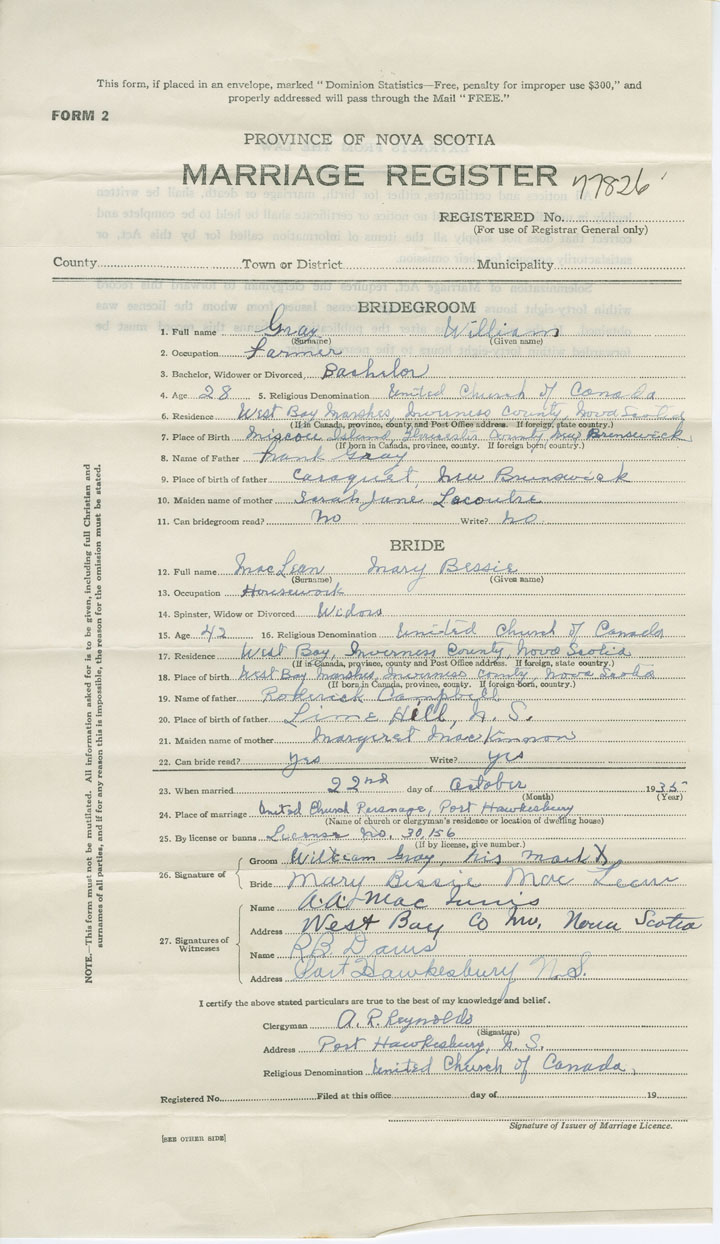 This form, if placed in an envelope, marked "Dominion Statistics—Free, penalty for improper use $300," and
properly addressed will pass through the Mail "FREE."
FORM 2
PROVINCE OF NOVA SCOTIA
MARRIAGE REGISTER 77826
REGISTERED No.
(For use of Registrar General only)
County Town or District Municipality
BRIDEGROOM
1. Full name Gray William
(Surname) (Given name)
2. Occupation Farmer
3. Bachelor, Widower or Divorced, Bachelor
4. Age 28 5. Religious Denomination United Church of Canada
6. Residence West Bay Marshes, Inverness County, Nova Scotia
(If in Canada, province, county and Post Office address. If foreign, state country.)
7. Place of Birth Miscou Island Gloucester County New Brunswick
(If born in Canada, province, county. If foreign born, country.)
8. Name of Father Frank Gray
9. Place of birth of father Caraquet, New Brunswick
10. Maiden name of mother Sarah Jane Lacoutre
11. Can bridegroom read? No Write? No
BRIDE
12. Full name MacLean Mary Bessie
(Surname) (Given name)
13. Occupation Housework
14. Spinster, Widow or Divorced Widow
15. Age 42 16. Religious Denomination United Church of Canada
17. Residence West Bay, Inverness County, Nova Scotia
(If in Canada, province, county and Post Office address. If foreign, state country.)
18. Place of birth West Bay Marshes, Inverness County, Nova Scotia
(If born in Canada, province, county. If foreign-born, country.)
19. Name of father Roderick Campbell
20. Place of birth of father Lime Hill, N. S.
21. Maiden name of mother Margaret MacKinnon
22. Can bride read? Yes Write? yes
23. When married 22nd day of October 1935
(Month) (Year)
24. Place of marriage United Church Parsonage, Port Hawkesbury
(Name of church or clergyman's residence or location of dwelling house)
25. By license or banns License No. 30,156
(If by license, give number.)
26. Signature of
Groom William Gray, his mark X
Bride Mary Bessie Mac Lean
27. Signatures of Witnesses
Name A. A. MacInnis
Address West Bay Co Inv, Nova Scotia
Name R B Davis
Address Port Hawkesbury N. S.
I certify the above stated particulars are true to the best of my knowledge and belief.
Clergyman A. P. Reynolds
(Signature)
Address Port Hawkesbury, N. S.
Religious Denomination United Church of Canada,
Registered No. Filed at this office day of 19
Signature of Issuer of Marriage Licence.
[SEE OTHER SIDE]
NOTE.—This form must not be mutilated. All information asked for is to be given, including full Christian and
surnames of all parties, and if for any reason this is impossible, the reason for the omission must be stated.